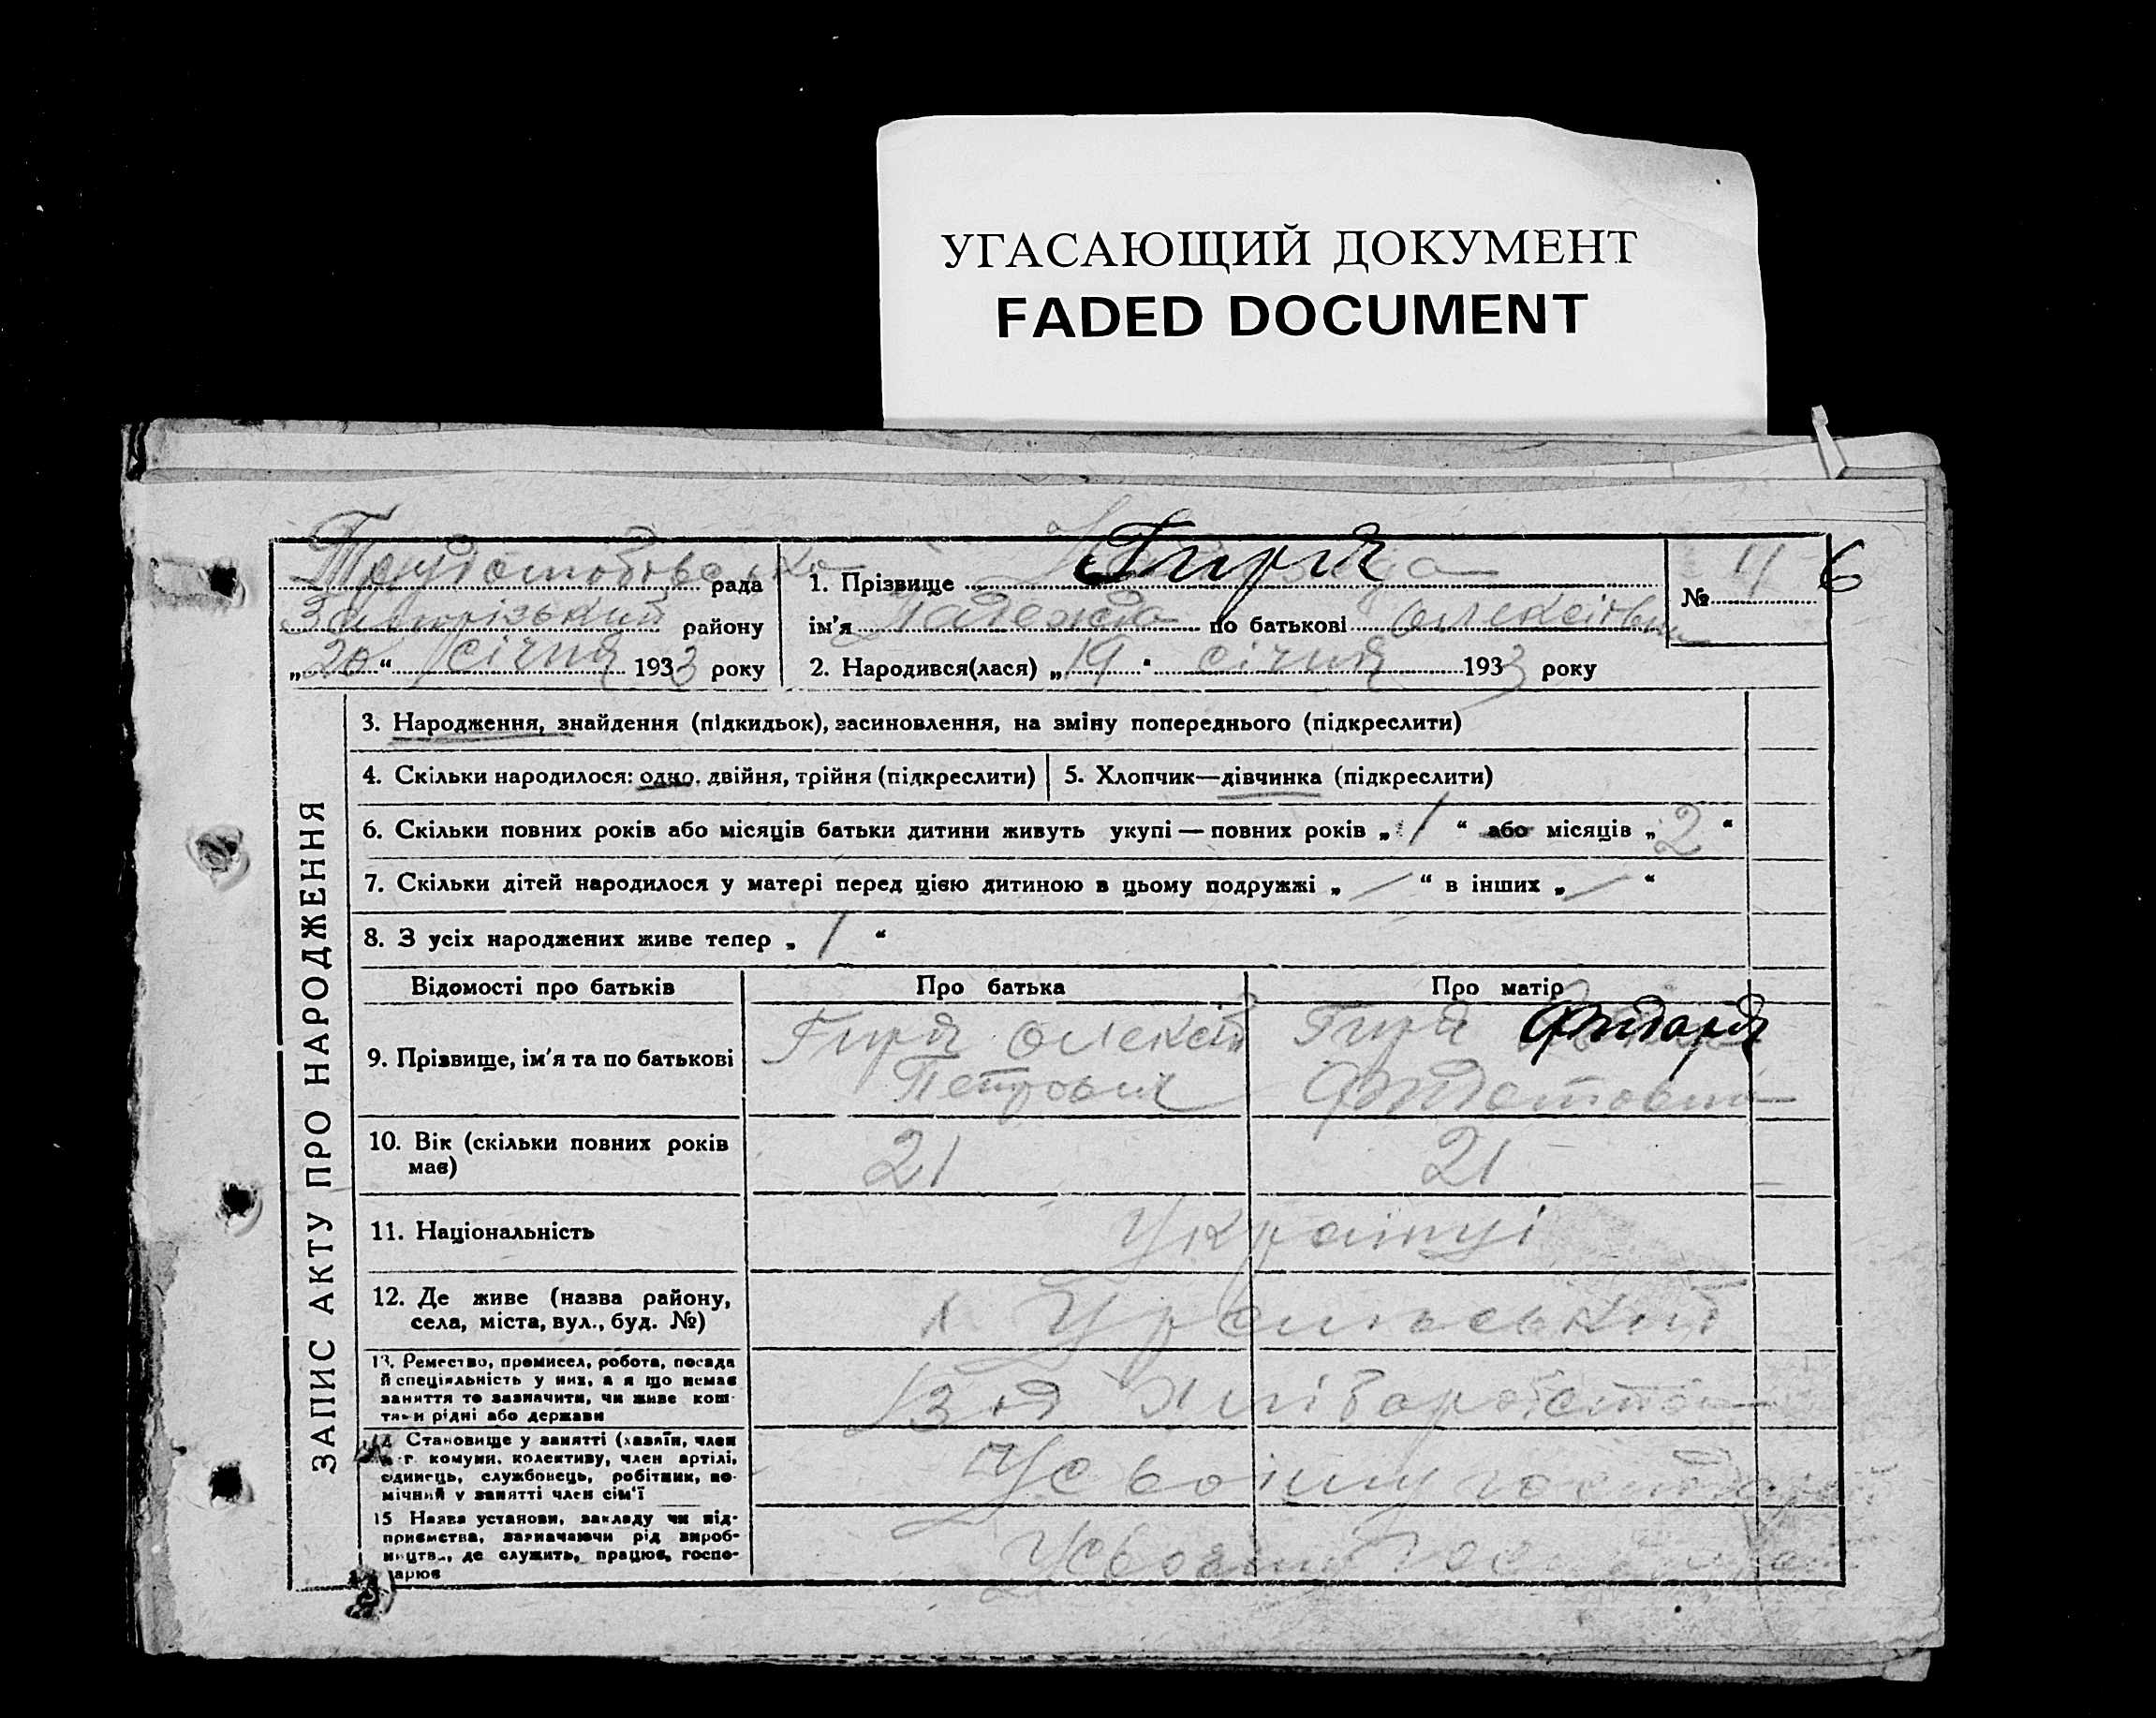 УГАСАЮЩИЙ ДОКУМЕНТ
FADED DOCUMENT
рада
Запорізький району
„20“ січня 1933 року
1. Прізвище Гиря
ім'я Надежда по батькові Олексіївна
2. Народився(лася) „19“ січня 1933 року
№ 11
6
ЗАПИС АКТУ ПРО НАРОДЖЕННЯ
3. Народження, знайдення (підкидьок), засиновлення, на зміну попереднього (підкреслити)
4. Скільки народилося: одно, двійня, трійня (підкреслити)
5. Хлопчик—дівчинка (підкреслити)
6. Скільки повних років або місяців батьки дитини живуть укупі — повних років „1“ або місяців „2“
7. Скільки дітей народилося у матері перед цією дитиною в цьому подружжі „ / “ в інших „ / “
8. З усіх народжених живе тепер „ 1 “
Відомості про батьків
Про батька
Про матір
9. Прізвище, ім'я та по батькові
Гиря Олексій
Петрович
Гиря
10. Вік (скільки повних років
має)
21
21
11. Національність
Українці
12. Де живе (назва району,
села, міста, вул., буд. №)
х Уральський
13. Ремество, промисел, робота, посада
й спеціяльність у них, а я що немає
заняття то зазначити, чи живе кош-
тами рідні або держави
14. Становище у занятті (хазяїн, член
с.-г. комуни, колективу, член артілі,
одинець, службовець, робітник, по-
мічний у занятті член сім'ї
У своїму
15 Назва установи, закладу чи під-
приємства, зазначаючи рід вироб-
ництва, де служить, працює, госпо-
дарює
У своїму